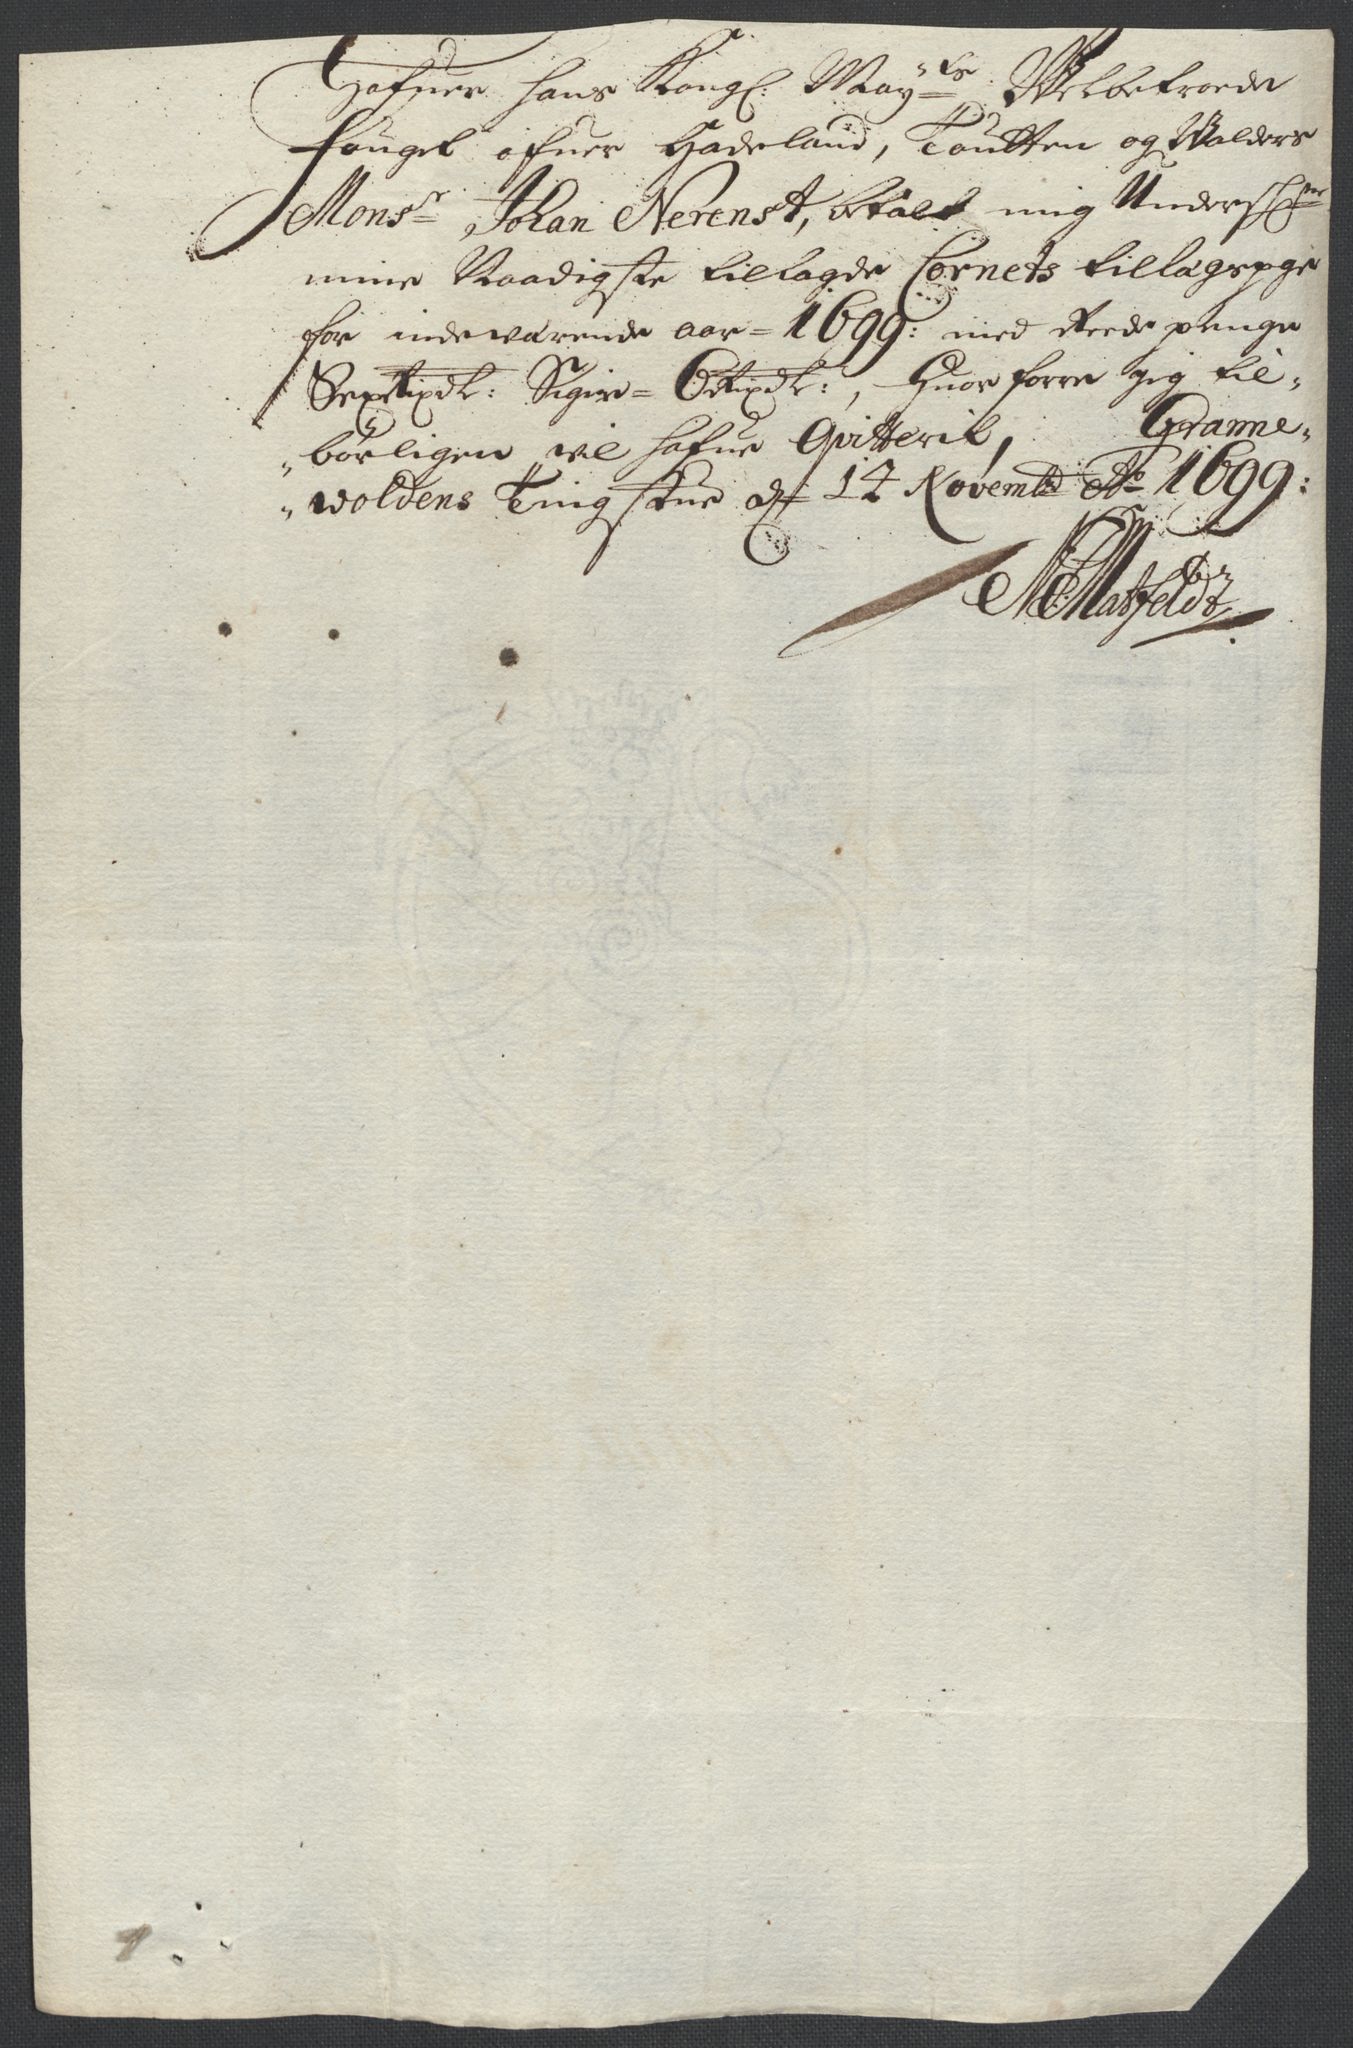 Hafuer hans Kongl: May:ts Welbetroede
fouget ofuer Hadeland, Toutten og Walders
Monsr Johan Nerenst, betalt mig Undersch:ne
mine Naadigste tillagde Cornets tillægspge
for indewærende aar = 1699: med Reede penge
Sextipdr: Siger = Octipdr:, Huor forre jeg til-
-börligen wil hafue Qvitterit, Granne-
-woldens Tingstue d 14 Novemb Ao 1699:
Matfeldt